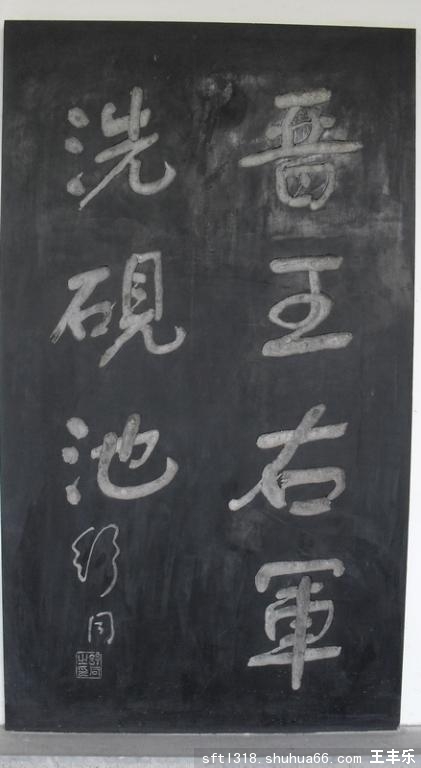 晉王右軍
洗硯池
舒同
sftl318.shuhua66.com 王丰乐